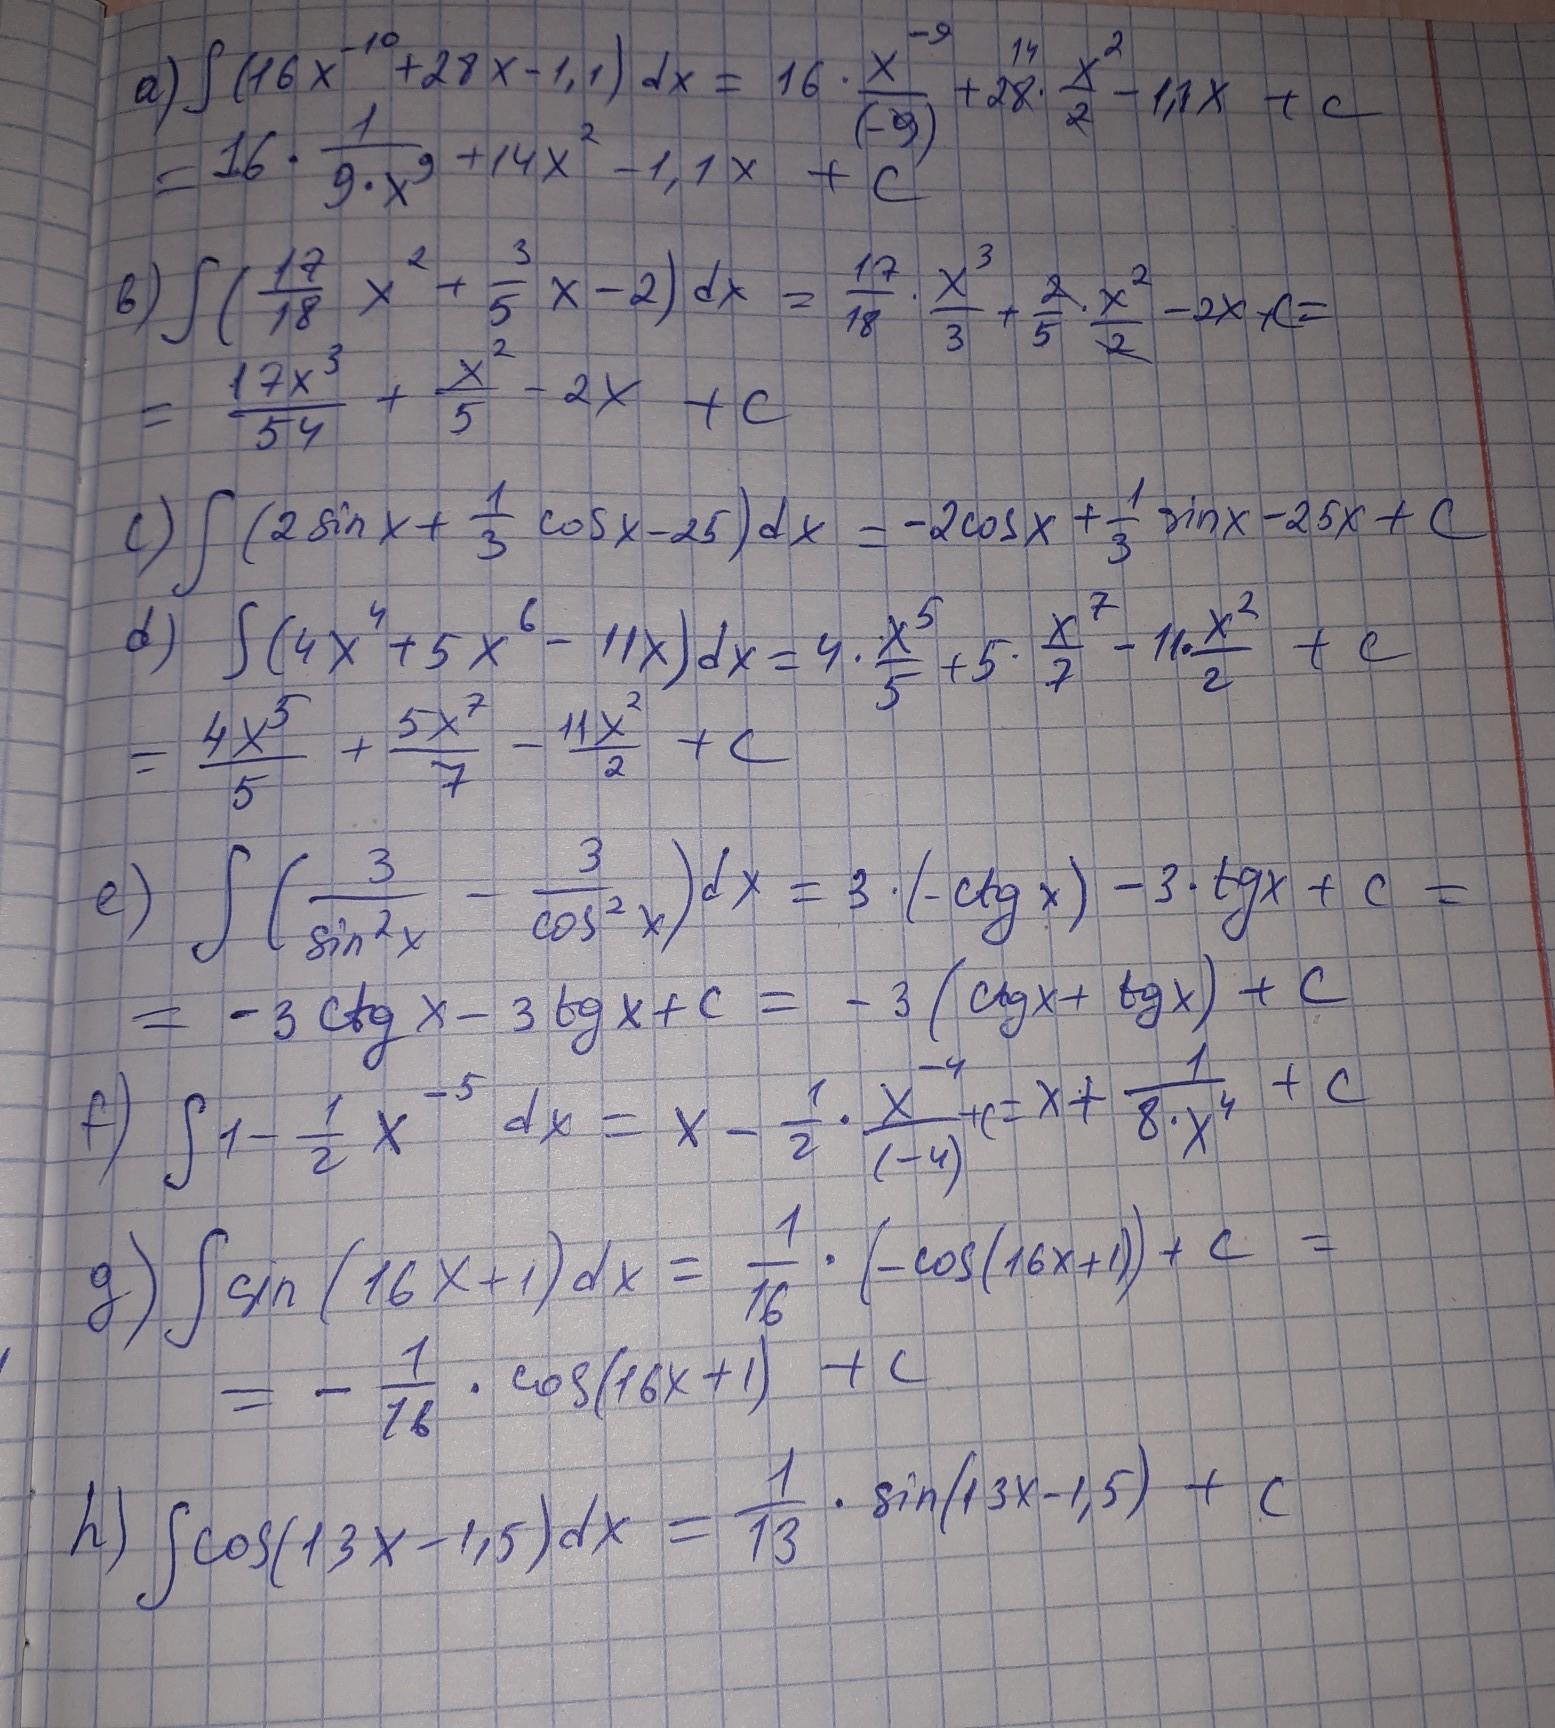 a) ∫(16x⁻¹⁰+28x-1,1)dx = 16·x⁻⁹/(-9)+28·¹⁴x²/2-1,1x + c
= 16·1/(9·x⁹)+14x²-1,1x + c
в) ∫(17/18 x²+3/5 x-2)dx = 17/18·x³/3+2/5·x²/2-2x+c=
= 17x³/54 + x²/5 - 2x + c
c) ∫(2sinx+1/3 cosx-25)dx = -2cosx+1/3 sinx-25x+c
d) ∫(4x⁴+5x⁶-11x)dx = 4·x⁵/5+5·x⁷/7-11·x²/2 + c
= 4x⁵/5 + 5x⁷/7 - 11x²/2 + c
e) ∫(3/sin²x - 3/cos²x)dx = 3·(-ctgx)-3·tgx+c =
= -3ctgx-3tgx+c = -3(ctgx+tgx)+c
f) ∫1-1/2 x⁻⁵ dx = x-1/2·x⁻⁴/(-4)+c=x+1/(8·x⁴)+c
g) ∫sin(16x+1)dx = 1/16·(-cos(16x+1))+c =
= -1/16·cos(16x+1) + c
h) ∫cos(13x-1,5)dx = 1/13·sin(13x-1,5) + c